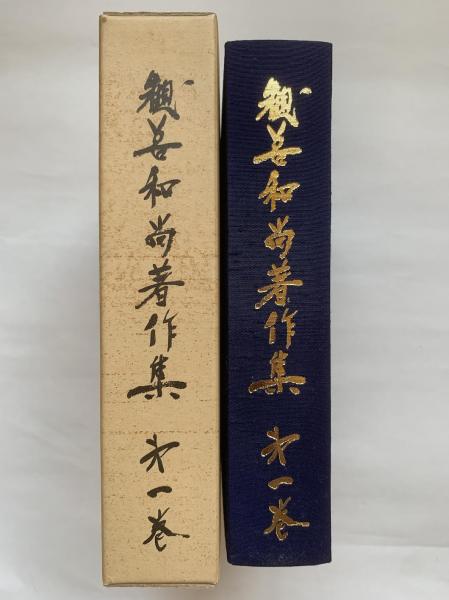 観善和尚著作集 第一巻
観善和尚著作集 第一巻